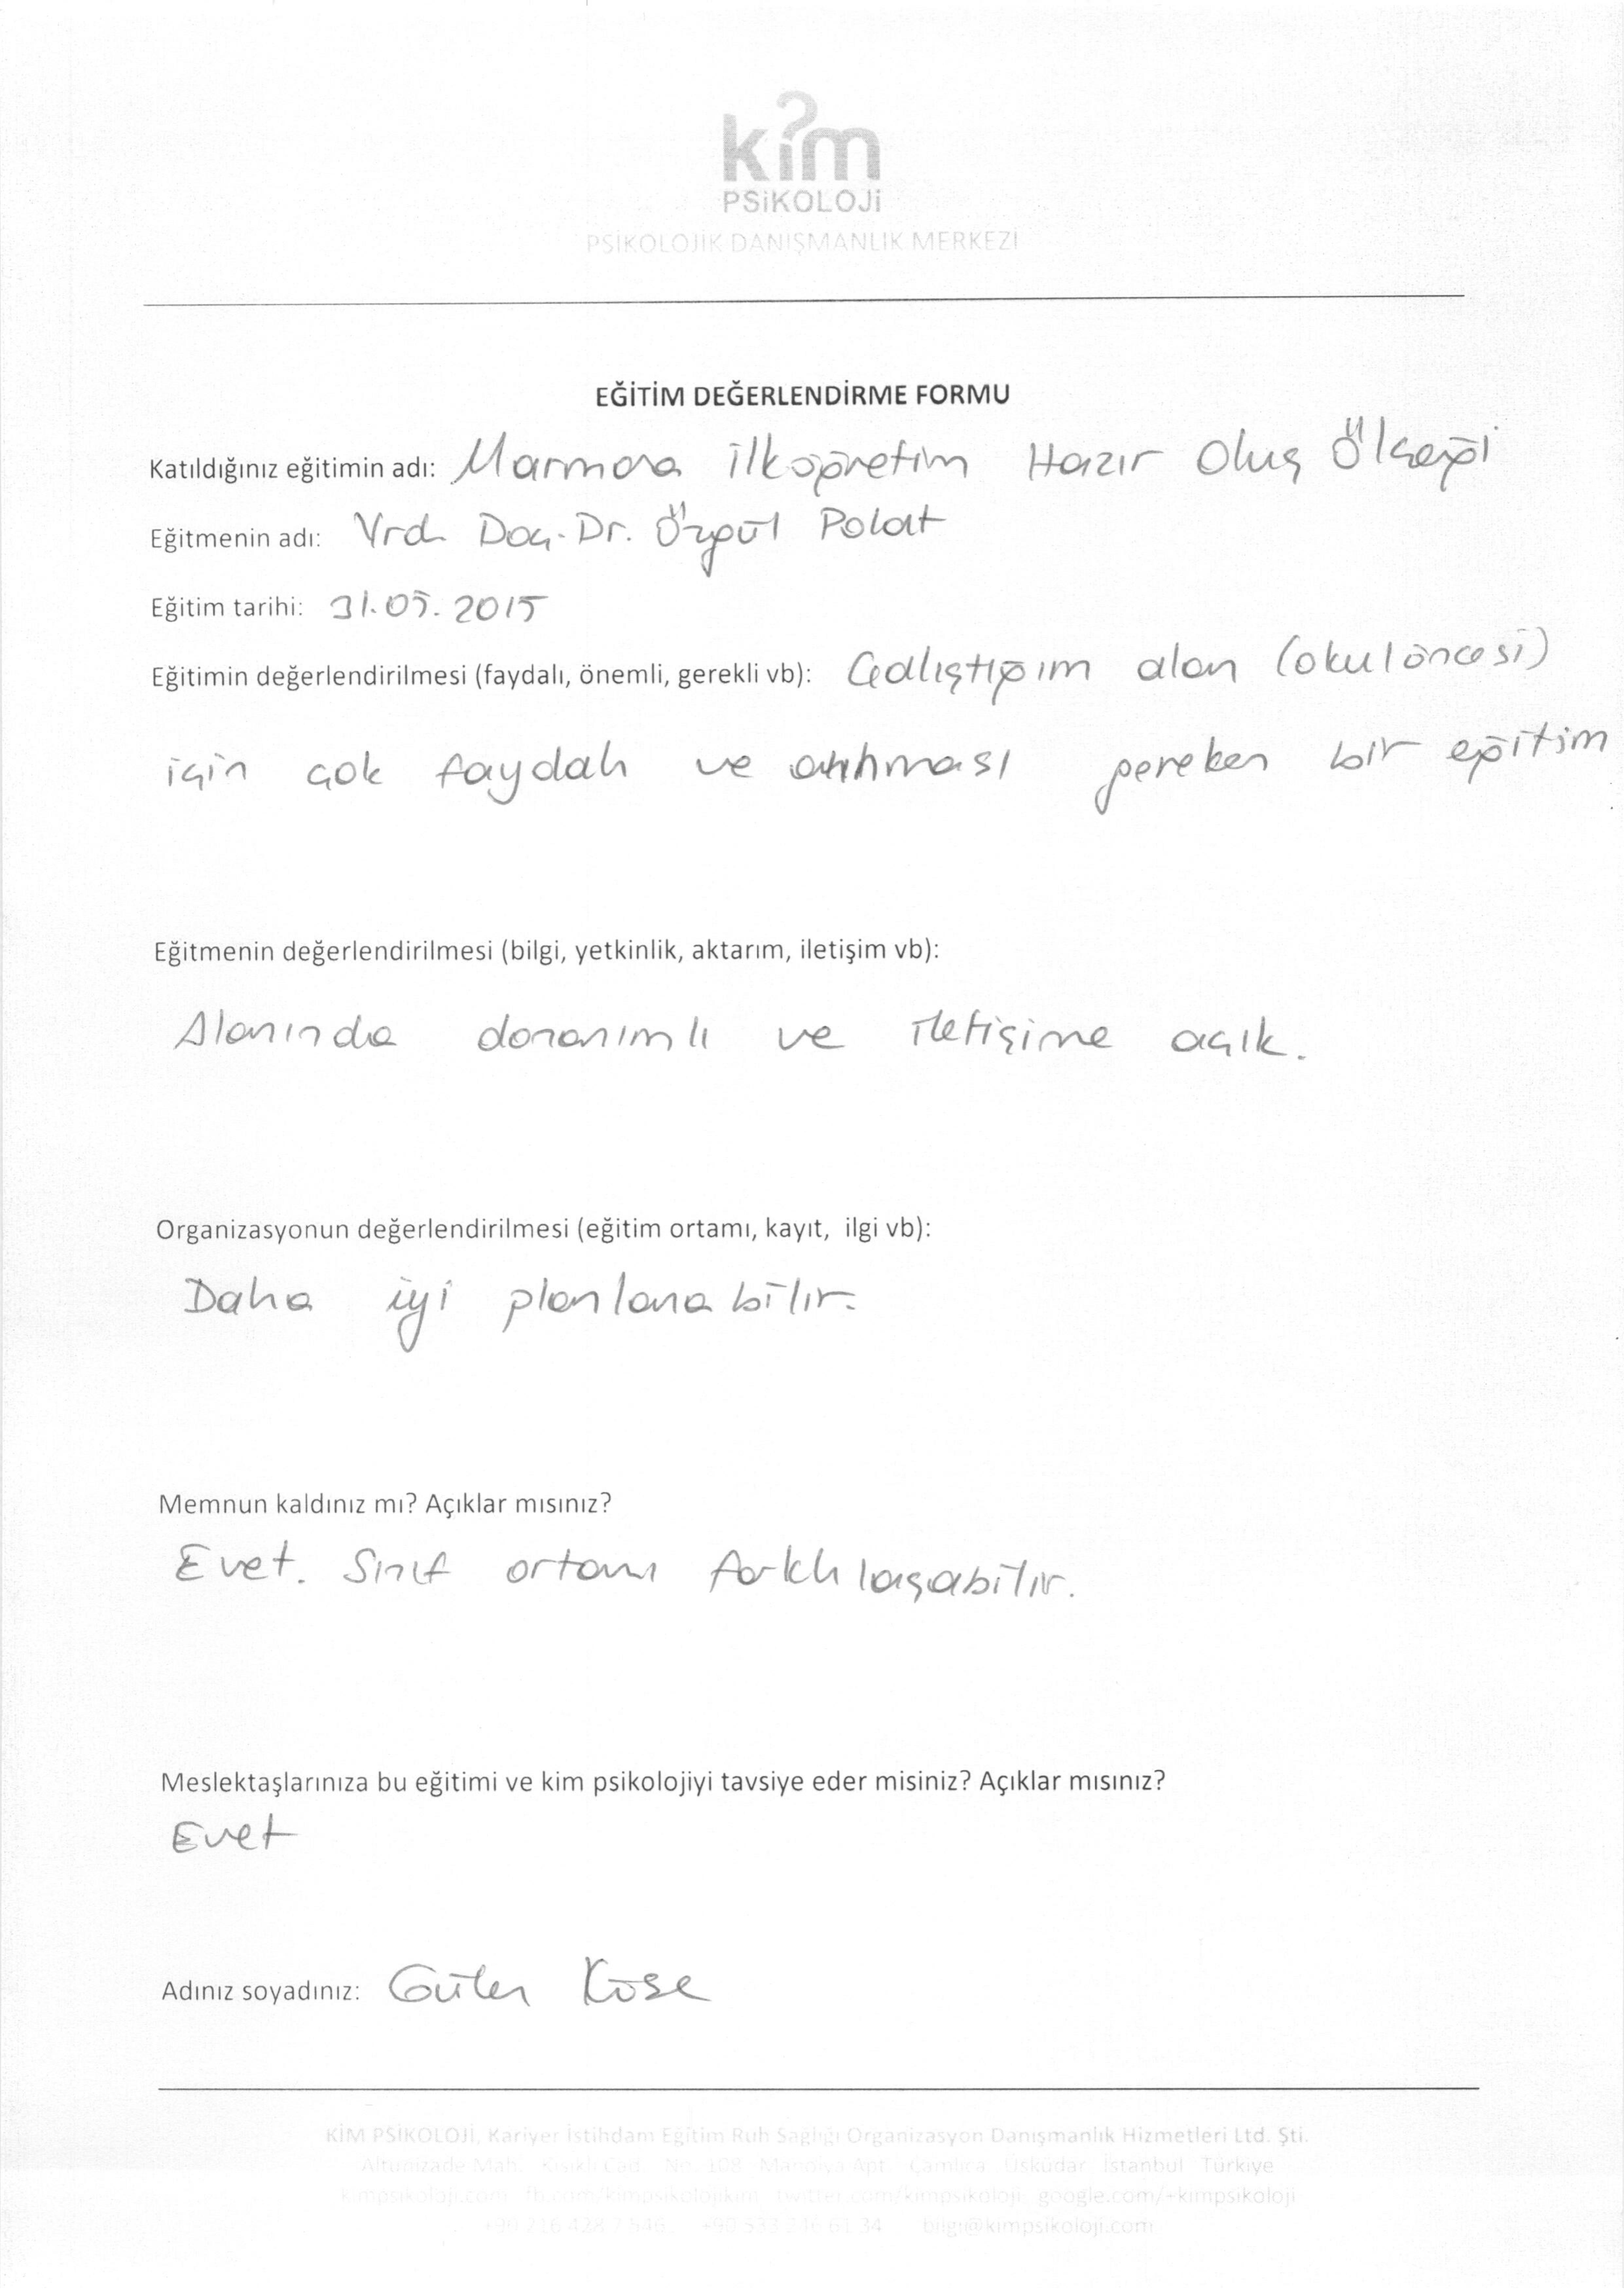 kim
PSiKOLOJi
PSİKOLOJİK DANIŞMANLIK MERKEZİ
EĞİTİM DEĞERLENDİRME FORMU
Katıldığınız eğitimin adı: Marmara ilköğretim Hazır Oluş Ölçeği
Eğitmenin adı: Yrd. Doç. Dr. Özgül Polat
Eğitim tarihi: 31.05.2015
Eğitimin değerlendirilmesi (faydalı, önemli, gerekli vb): Çalıştığım alan (okulöncesi)
için çok faydalı ve gereken bir eğitim
Eğitmenin değerlendirilmesi (bilgi, yetkinlik, aktarım, iletişim vb):
Alanında donanımlı ve iletişime açık.
Organizasyonun değerlendirilmesi (eğitim ortamı, kayıt, ilgi vb):
Daha iyi planlanabilir.
Memnun kaldınız mı? Açıklar mısınız?
Evet. Sınıf ortamı farklılaşabilir.
Meslektaşlarınıza bu eğitimi ve kim psikolojiyi tavsiye eder misiniz? Açıklar mısınız?
Evet
Adınız soyadınız: Güler Köse
KİM PSİKOLOJİ, Kariyer İstihdam Eğitim Ruh Sağlığı Organizasyon Danışmanlık Hizmetleri Ltd. Şti.
Altunizade Mah. Kısıklı Cad. No. 108 Apt. Çamlıca Üsküdar İstanbul Türkiye
kimpsikoloji.com twitter.com/kimpsikoloji google.com/+kimpsikoloji
bilgi@kimpsikoloji.com